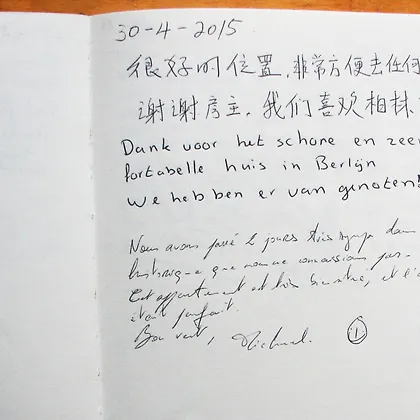 30-4-2015
很好的位置，非常方便去任何
谢谢房主，我们喜欢柏林
Dank voor het schone en zeer
fortabelle huis in Berlijn
We hebben er van genoten!
Nous avons passé jours très sympa dans
que nous ne connaissions pas.
Cet appartement est très bien situé, et l'a
était parfait.
Bon vent, Michael.